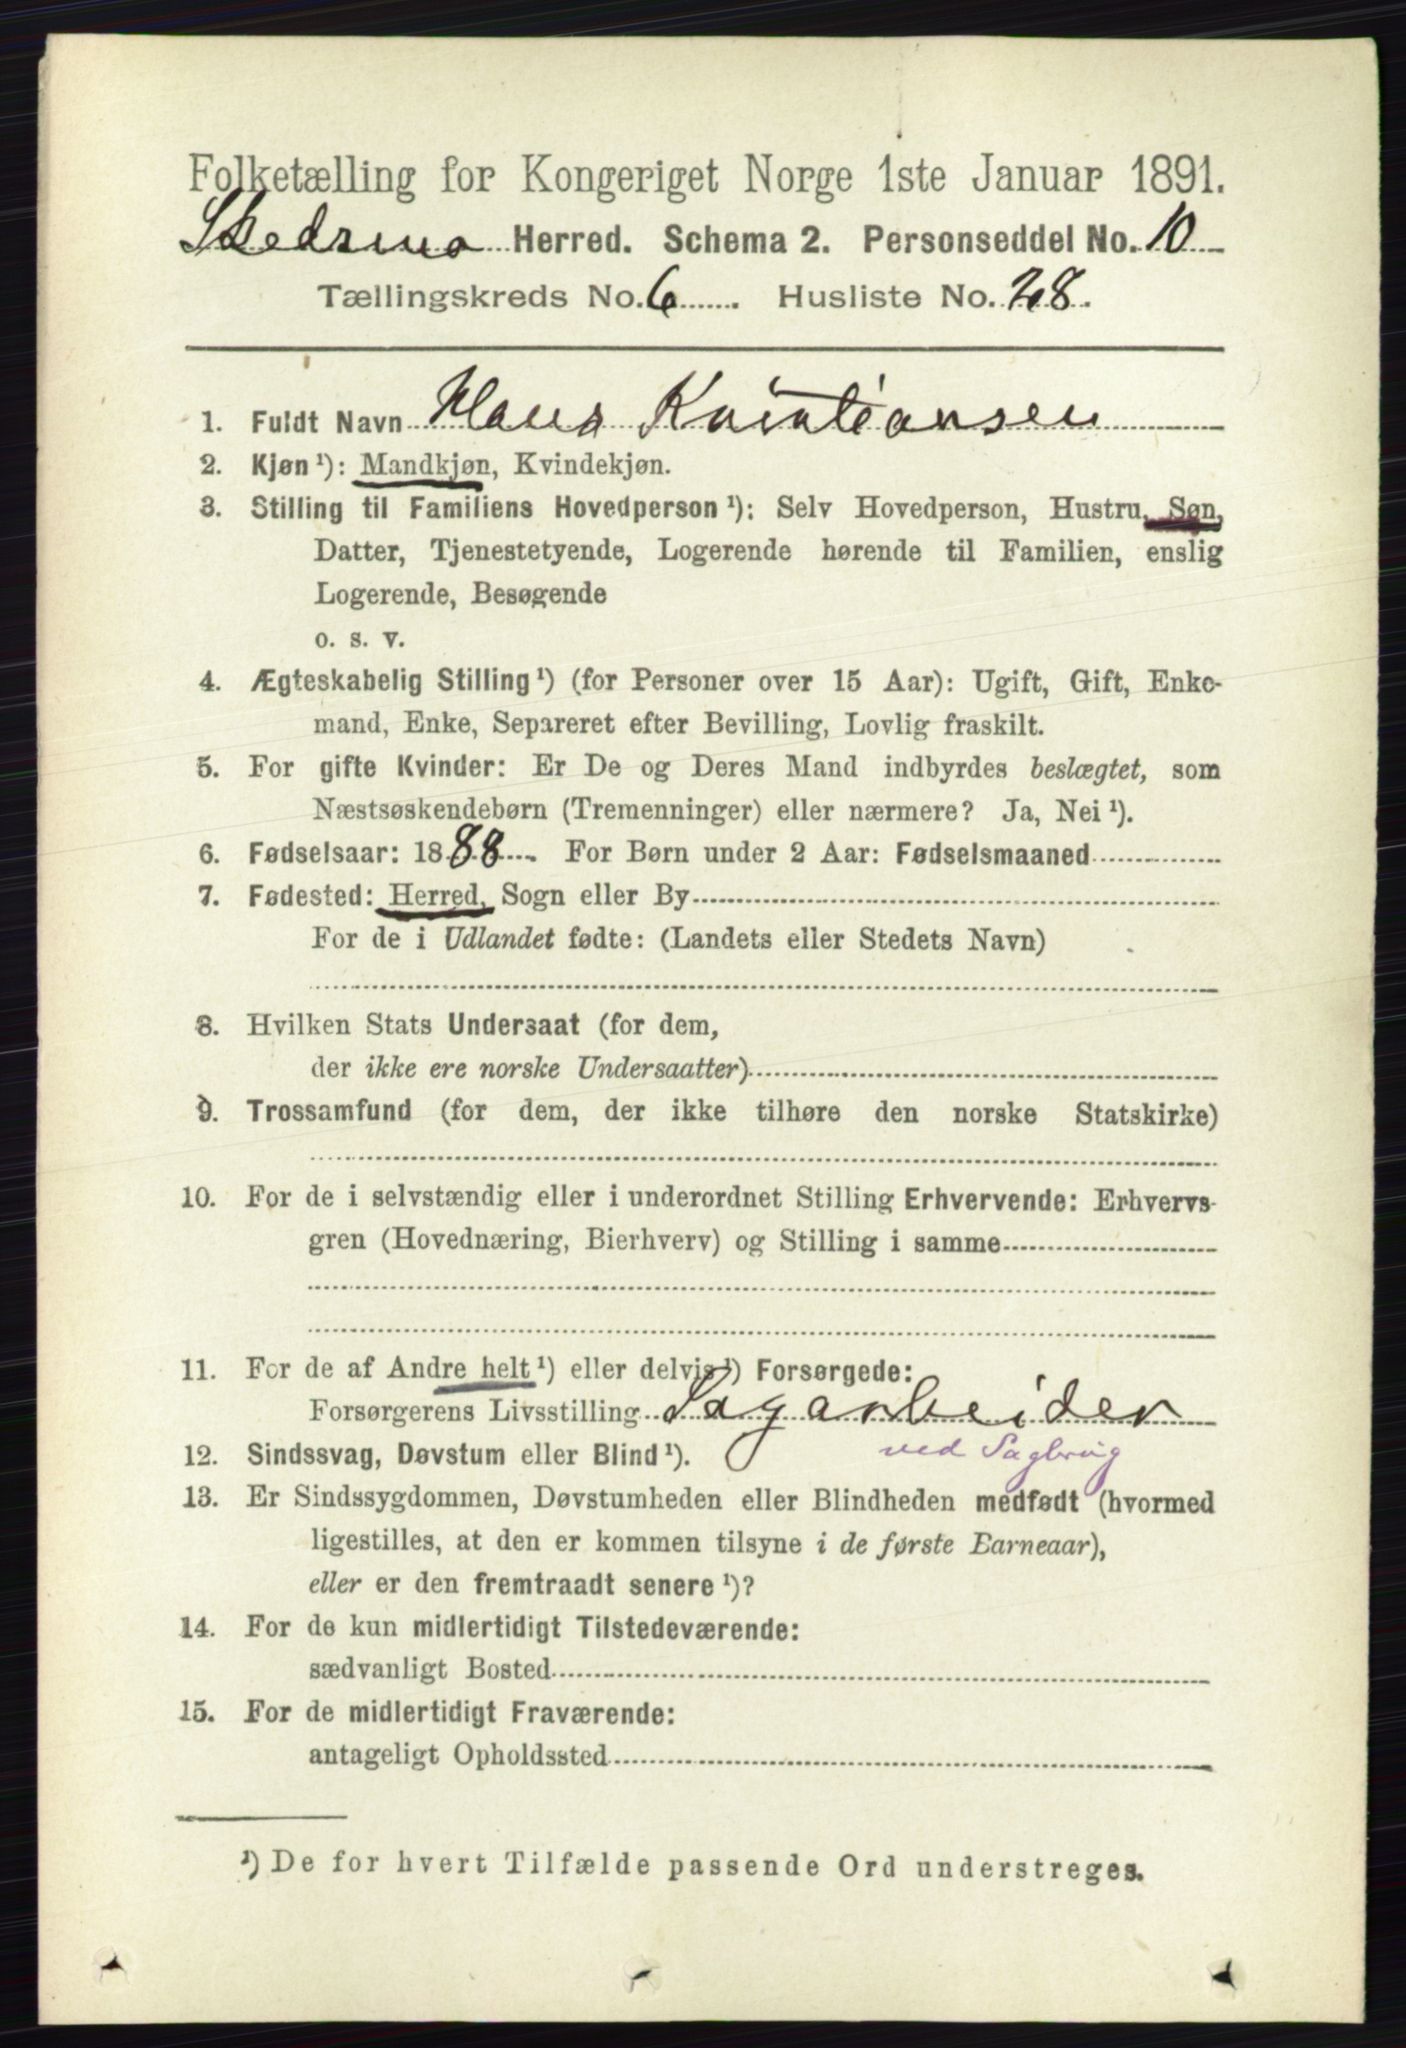 Folketælling for Kongeriget Norge 1ste Januar 1891.
Skedsmo Herred. Schema 2. Personseddel No. 10
Tællingskreds No. 6 Husliste No. 28.
1. Fuldt Navn Hans Kristiansen
2. Kjøn ¹): Mandkjøn, Kvindekjøn.
3. Stilling til Familiens Hovedperson ¹): Selv Hovedperson, Hustru, Søn,
Datter, Tjenestetyende, Logerende hørende til Familien, enslig
Logerende, Besøgende
o. s. v.
4. Ægteskabelig Stilling ¹) (for Personer over 15 Aar): Ugift, Gift, Enke-
mand, Enke, Separeret efter Bevilling, Lovlig fraskilt.
5. For gifte Kvinder: Er De og Deres Mand indbyrdes beslægtet, som
Næstsøskendebørn (Tremenninger) eller nærmere? Ja, Nei ¹).
6. Fødselsaar: 1888. For Børn under 2 Aar: Fødselsmaaned
7. Fødested: Herred, Sogn eller By
For de i Udlandet fødte: (Landets eller Stedets Navn)
8. Hvilken Stats Undersaat (for dem,
der ikke ere norske Undersaatter)
9. Trossamfund (for dem, der ikke tilhøre den norske Statskirke)
10. For de i selvstændig eller i underordnet Stilling Erhvervende: Erhvervs-
gren (Hovednæring, Bierhverv) og Stilling i samme
11. For de af Andre helt ¹) eller delvis ¹) Forsørgede:
Forsørgerens Livsstilling Sagarbeider
12. Sindssvag, Døvstum eller Blind ¹). ved Sagbrug
13. Er Sindssygdommen, Døvstumheden eller Blindheden medfødt (hvormed
ligestilles, at den er kommen tilsyne i de første Barneaar),
eller er den fremtraadt senere ¹)?
14. For de kun midlertidigt Tilstedeværende:
sædvanligt Bosted
15. For de midlertidigt Fraværende:
antageligt Opholdssted
¹) De for hvert Tilfælde passende Ord understreges.